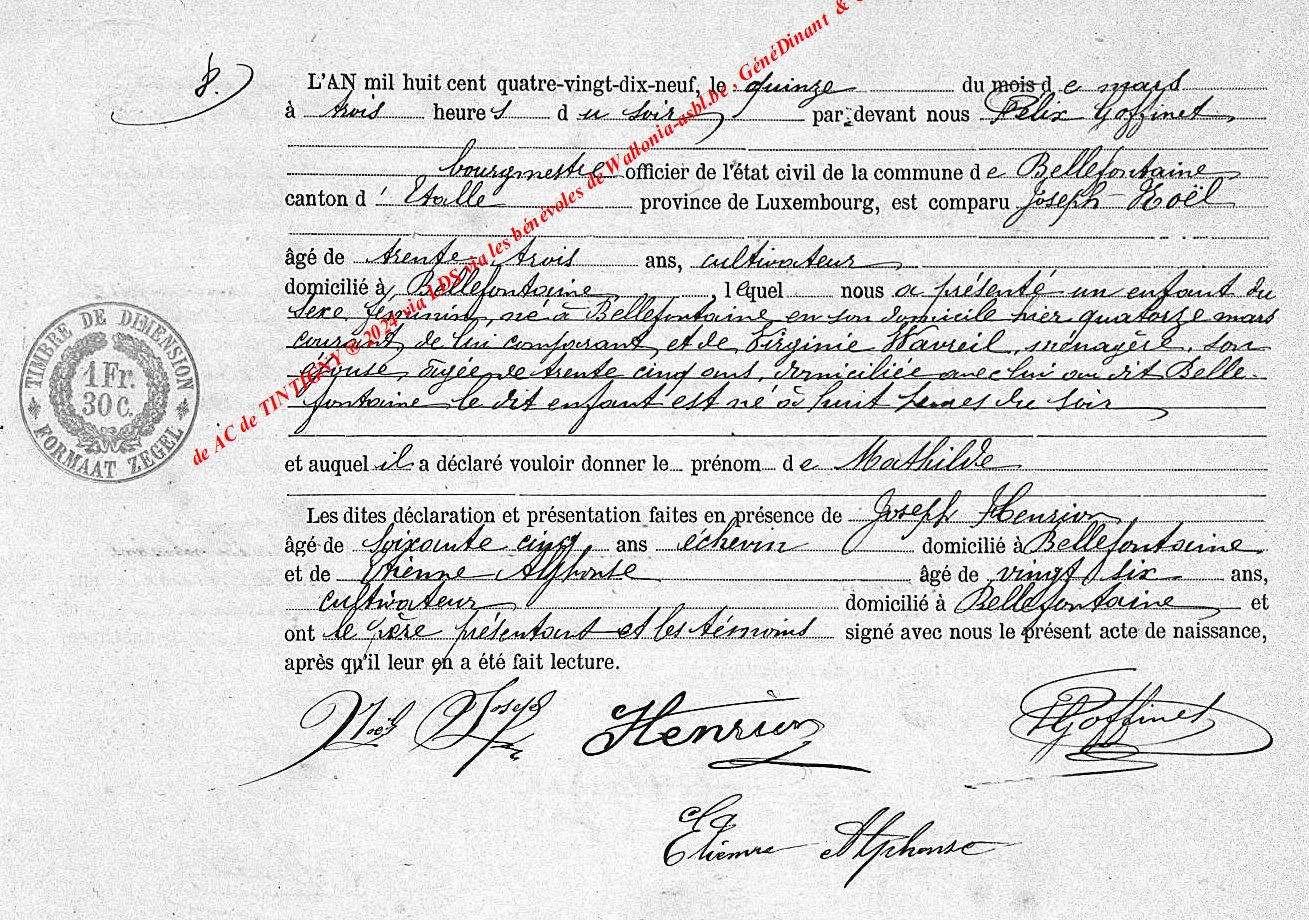 8.
L'AN mil huit cent quatre-vingt-dix-neuf, le quinze du mois de mars
à trois heures du soir, par devant nous Félix Goffinet,
bourgmestre officier de l'état civil de la commune de Bellefontaine
canton d'Etalle province de Luxembourg, est comparu Joseph Noël
âgé de trente-trois ans, cultivateur
domicilié à Bellefontaine, lequel nous a présenté un enfant du
sexe féminin, né à Bellefontaine en son domicile hier quatorze mars
courant, de lui comparant et de Virginie Wavreil, ménagère, son
épouse, âgée de trente cinq ans, domiciliée avec lui au dit Belle-
fontaine le dit enfant est né à huit heures du soir
et auquel il a déclaré vouloir donner le prénom de Mathilde
Les dites déclaration et présentation faites en présence de Joseph Henrion
âgé de soixante cinq ans échevin domicilié à Bellefontaine
et de Etienne Alphonse âgé de vingt six ans,
cultivateur domicilié à Bellefontaine et
ont le père présentant et les témoins signé avec nous le présent acte de naissance,
après qu'il leur en a été fait lecture.
Noël Joseph Henrion Goffinet
Etienne Alphonse
TIMBRE DE DIMENSION
1 Fr.
30 C.
FORMAAT ZEGEL
de AC de TINTIGNY ® 2024 via LDS via les bénévoles de Wallonia-asbl.be, GénéDinant &